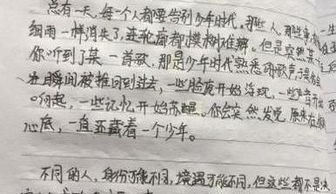 总有一天，每一个人都要告别少年时代，那些人，那些事
细雨一样消失了，连轮廓都模糊难辨，但是突然某一
你听到了某一首歌，那是少年时代熟悉的歌声，
瞬间被推回到过去，一些脸庞开始浮现，一些
响起，一些记忆开始苏醒。你会突然发觉，原来在
心底，一直蛰藏着一个少年。
不同的人，身份可能不同，境遇可能不同，但这些都不是